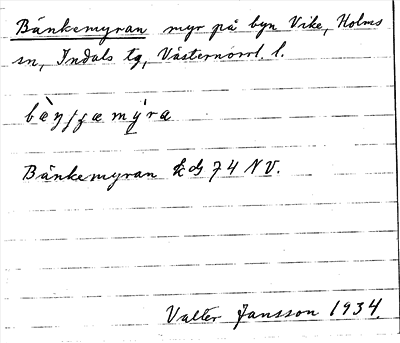 Bänkemyran myr på byn Vike, Holms
sn, Indals tg, Västernorrl. l.
Bänkemyran 74 NV.
Valter Jansson 1934.